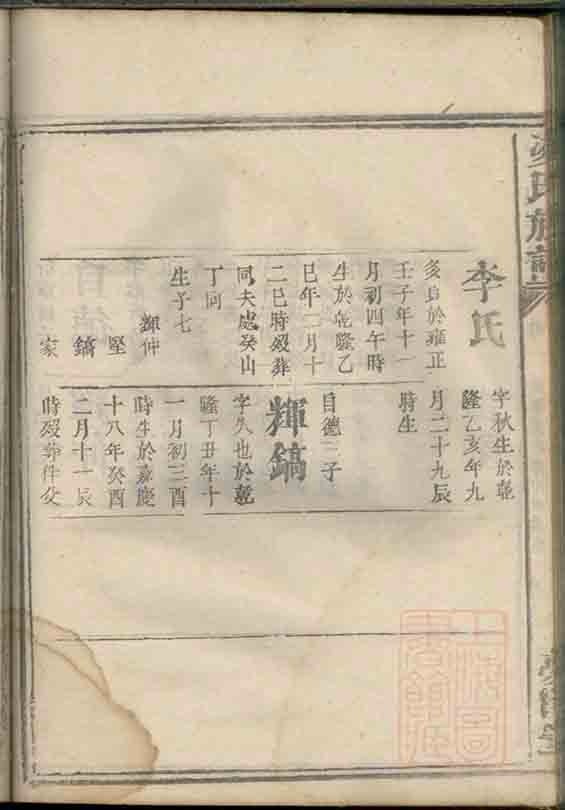 李氏
於雍正
壬子年十一
月初四午時
生於乾隆乙
巳年二月十
二巳時歿葬
同夫處癸山
丁向
生子七
輝仲
堅
鎬
家
字秋生於乾
隆乙亥年九
月二十九辰
時生
自德三子
輝鎬
字久也於乾
隆丁丑年十
一月初三酉
時生於嘉慶
十八年癸酉
二月十一辰
時歿葬件父
氏族譜
上海圖
書館藏